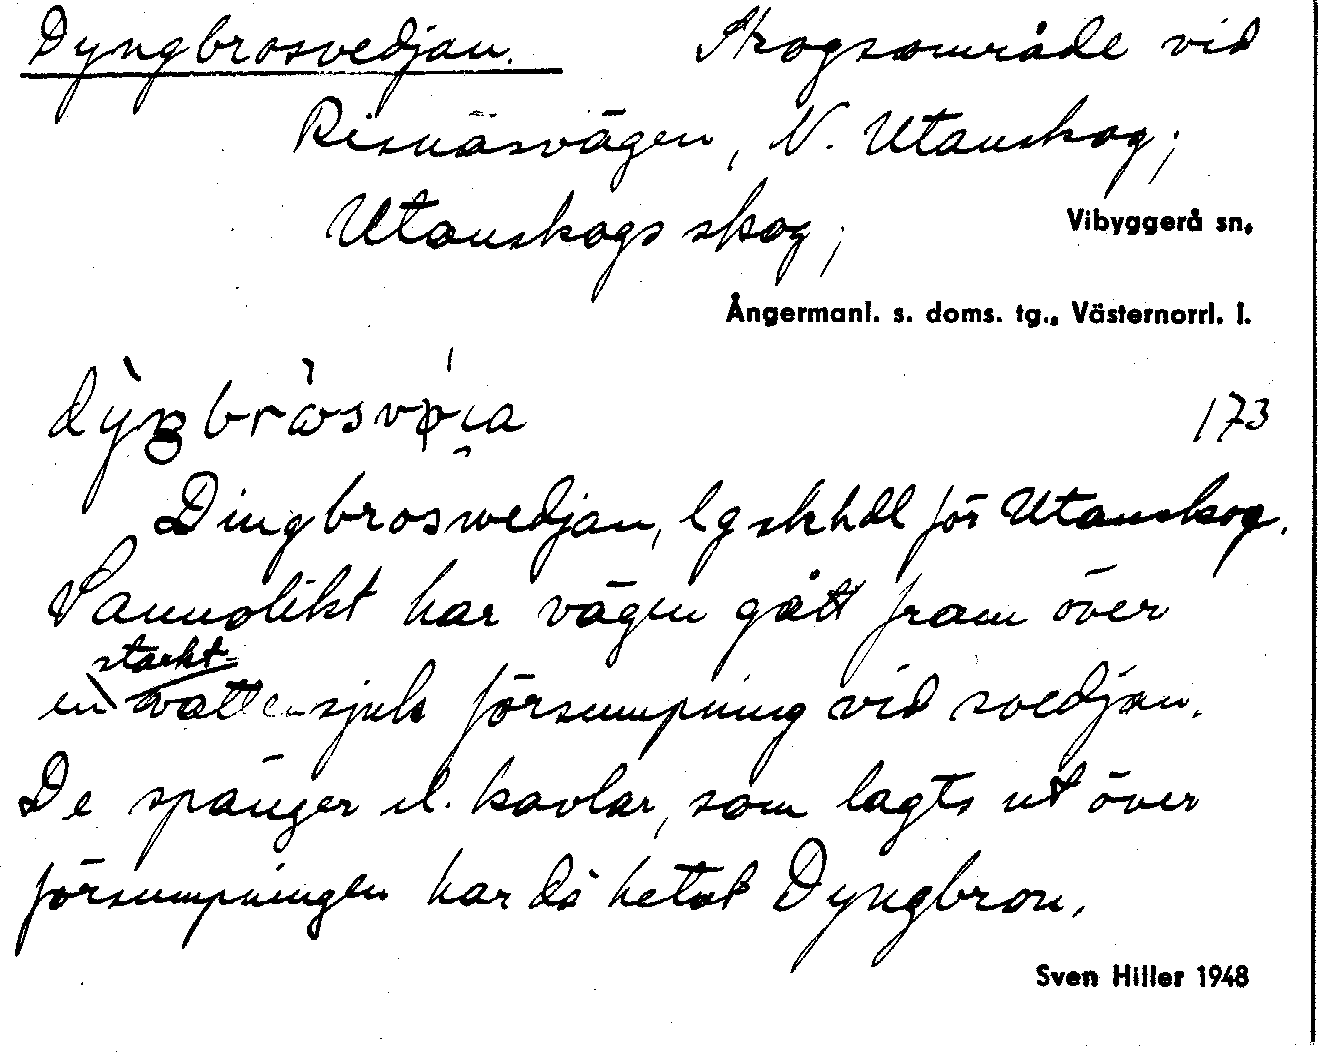 Dyngbrosvedjan. Skogsområde vid
Risnäsvägen, N. Utanskog;
Utanskogs skog;
Vibyggerå sn,
Ångermanl. s. doms. tg., Västernorrl. l.
173
Dingbroswedjan, lg skhdl för Utanskog.
Sannolikt har vägen gått fram över
starkt
en vattensjuk försumpning vid svedjan.
De spänger el. kavlar, som lagts ut över
försumpningen har då hetat Dyngbron.
Sven Hiller 1948